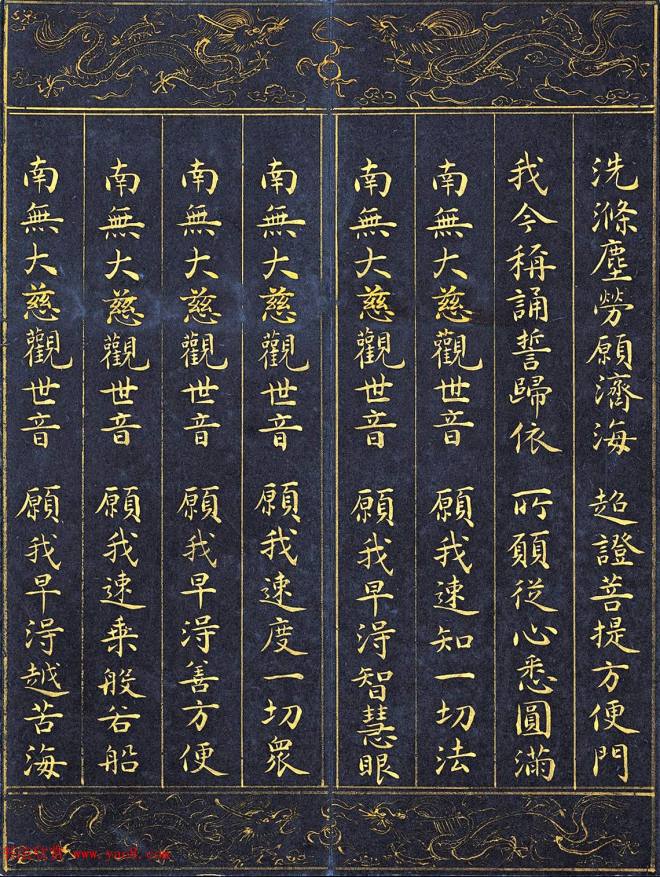 洗滌塵勞願濟海　超證菩提方便門
我今稱誦誓歸依　所願從心悉圓滿
南無大慈觀世音　願我速知一切法
南無大慈觀世音　願我早淂智慧眼
南無大慈觀世音　願我速度一切眾
南無大慈觀世音　願我早淂善方便
南無大慈觀世音　願我速乘般若船
南無大慈觀世音　願我早淂越苦海
www.yac8.com